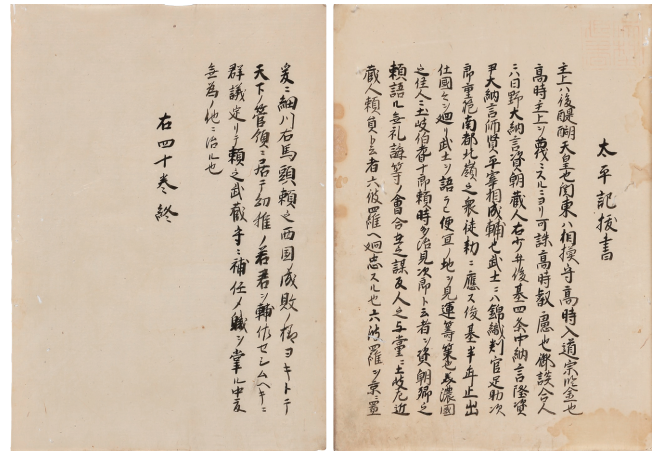 太平記抜書
主上ハ後醍醐天皇也関東ハ相摸守高時入道宗也
高時主上ヲ蔑ミスルニヨリ可誅高時叡慮也御談合人
ハ日野大納言資朝蔵人右少弁俊基四条中納言隆資
尹大納言師賢平宰相成輔也武士ニハ錦織判官足助次
郎重範南都北嶺之衆徒勅ニ應ス俊基半年止出
仕國ヲ廻リ武士ヲ語ラヒ便宜ノ地ヲ見運籌策也美濃國
之住人ニ土岐伯耆十郎頼時多治見次郎ト云者ヲ資朝卿之
頼語ル無礼講等ノ會合在之謀反人之与黨ニ土岐左近
蔵人頼員ト云者六波羅ヘ廻忠スル也六波羅ヲ京ニ置
爰ニ細川右馬頭頼之西国成敗ノ様ヨキトテ
天下ノ管領ニ居テ幼稚ノ若君ヲ輔佐セシムヘキニ
群議定リテ頼之武蔵守ニ補任ノ職ヲ掌ル中夏
無為ノ地ニ治ル也
右四十巻終